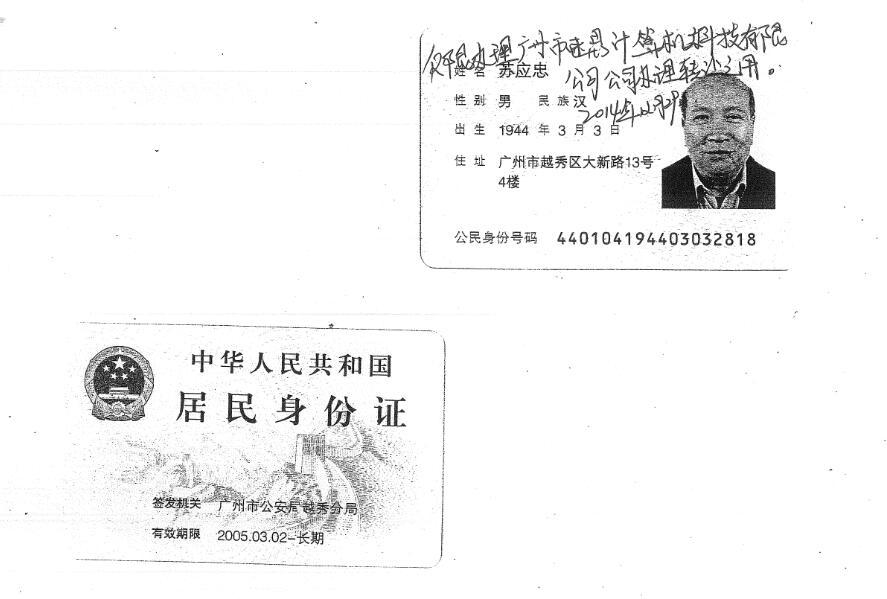 仅限办理广州市计算机科技有限
公司公司办理转让之用。
2014年
姓名 苏应忠
性别 男 民族 汉
出生 1944 年 3 月 3 日
住址 广州市越秀区大新路13号
4楼
公民身份号码 440104194403032818
中华人民共和国
居民身份证
签发机关 广州市公安局越秀分局
有效期限 2005.03.02-长期